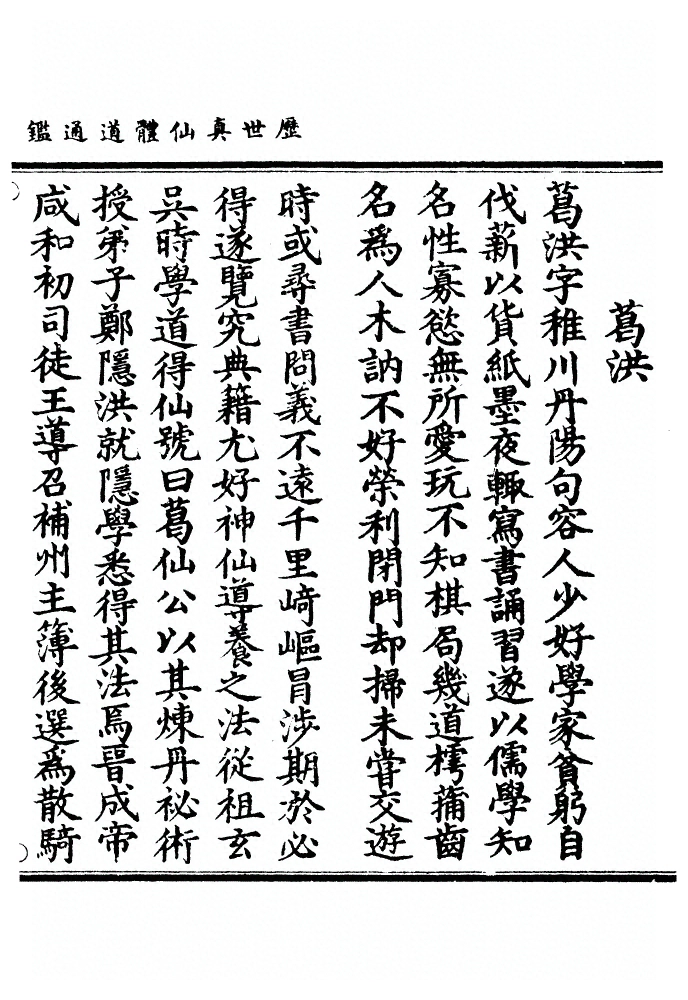 歷世真仙體道通鑑
葛洪
葛洪字稚川丹陽句容人少好學家貧躬自
伐薪以貨紙墨夜輒寫書誦習遂以儒學知
名性寡慾無所愛玩不知棋局幾道樗蒱齒
名爲人木訥不好榮利閉門却掃未嘗交遊
時或尋書問義不遠千里崎嶇冒涉期於必
得遂覽究典籍尤好神仙導養之法從祖玄
吳時學道得仙號曰葛仙公以其煉丹祕術
授弟子鄭隱洪就隱學悉得其法焉晉成帝
咸和初司徒王導召補州主簿後選爲散騎